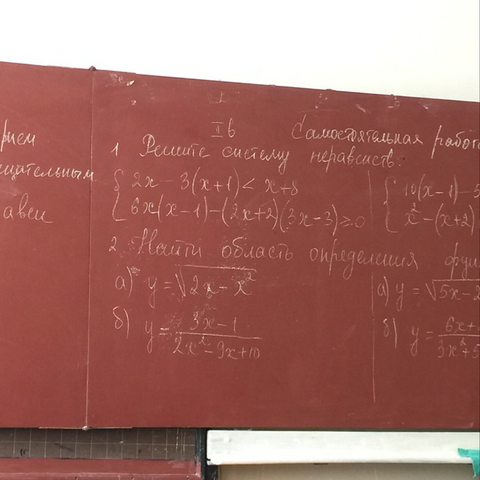 рием
щательным
авен
I в Самостоятельная работа
1 Решите систему неравенств:
{ 2x - 3(x+1) < x+8
6x(x-1)-(2x+2)(3x-3) ≥ 0
2. Найти область определения функ
а) y = √(2x - x²)
б) y = (3x-1)/(2x²-9x+10)
{ 10(x-1)-5
x²-(x+2)
а) y = √5x-2
б) y = 6x+ / 3x²+5